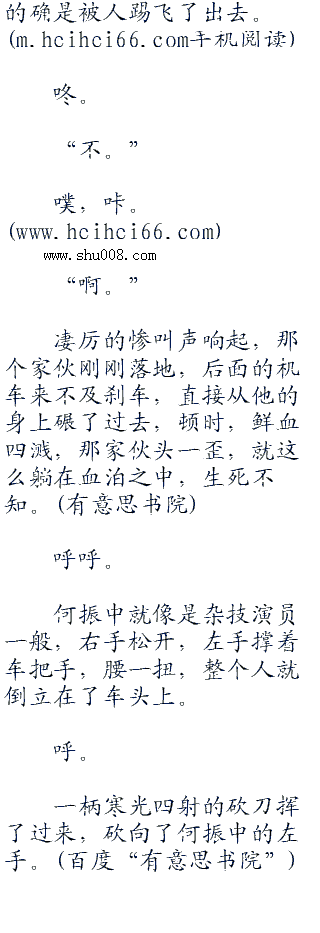 的确是被人踢飞了出去。
(m.hcihci66.com手机阅读)
咚。
“不。”
噗，咔。
(www.hcihci66.com)
www.shu008.com
“啊。”
凄厉的惨叫声响起，那
个家伙刚刚落地，后面的机
车来不及刹车，直接从他的
身上碾了过去，顿时，鲜血
四溅，那家伙头一歪，就这
么躺在血泊之中，生死不
知。(有意思书院)
呼呼。
何振中就像是杂技演员
一般，右手松开，左手撑着
车把手，腰一扭，整个人就
倒立在了车头上。
呼。
一柄寒光四射的砍刀挥
了过来，砍向了何振中的左
手。(百度“有意思书院”)